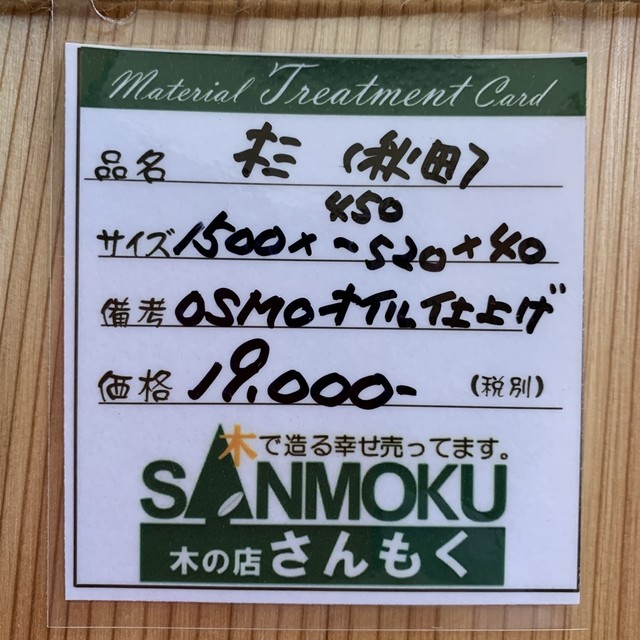 Material Treatment Card
品名 杉 (秋田)
450
サイズ 1500×~520×40
備考 OSMOオイル仕上げ
価格 19,000- (税別)
木で造る幸せ売ってます。
SANMOKU
木の店 さんもく